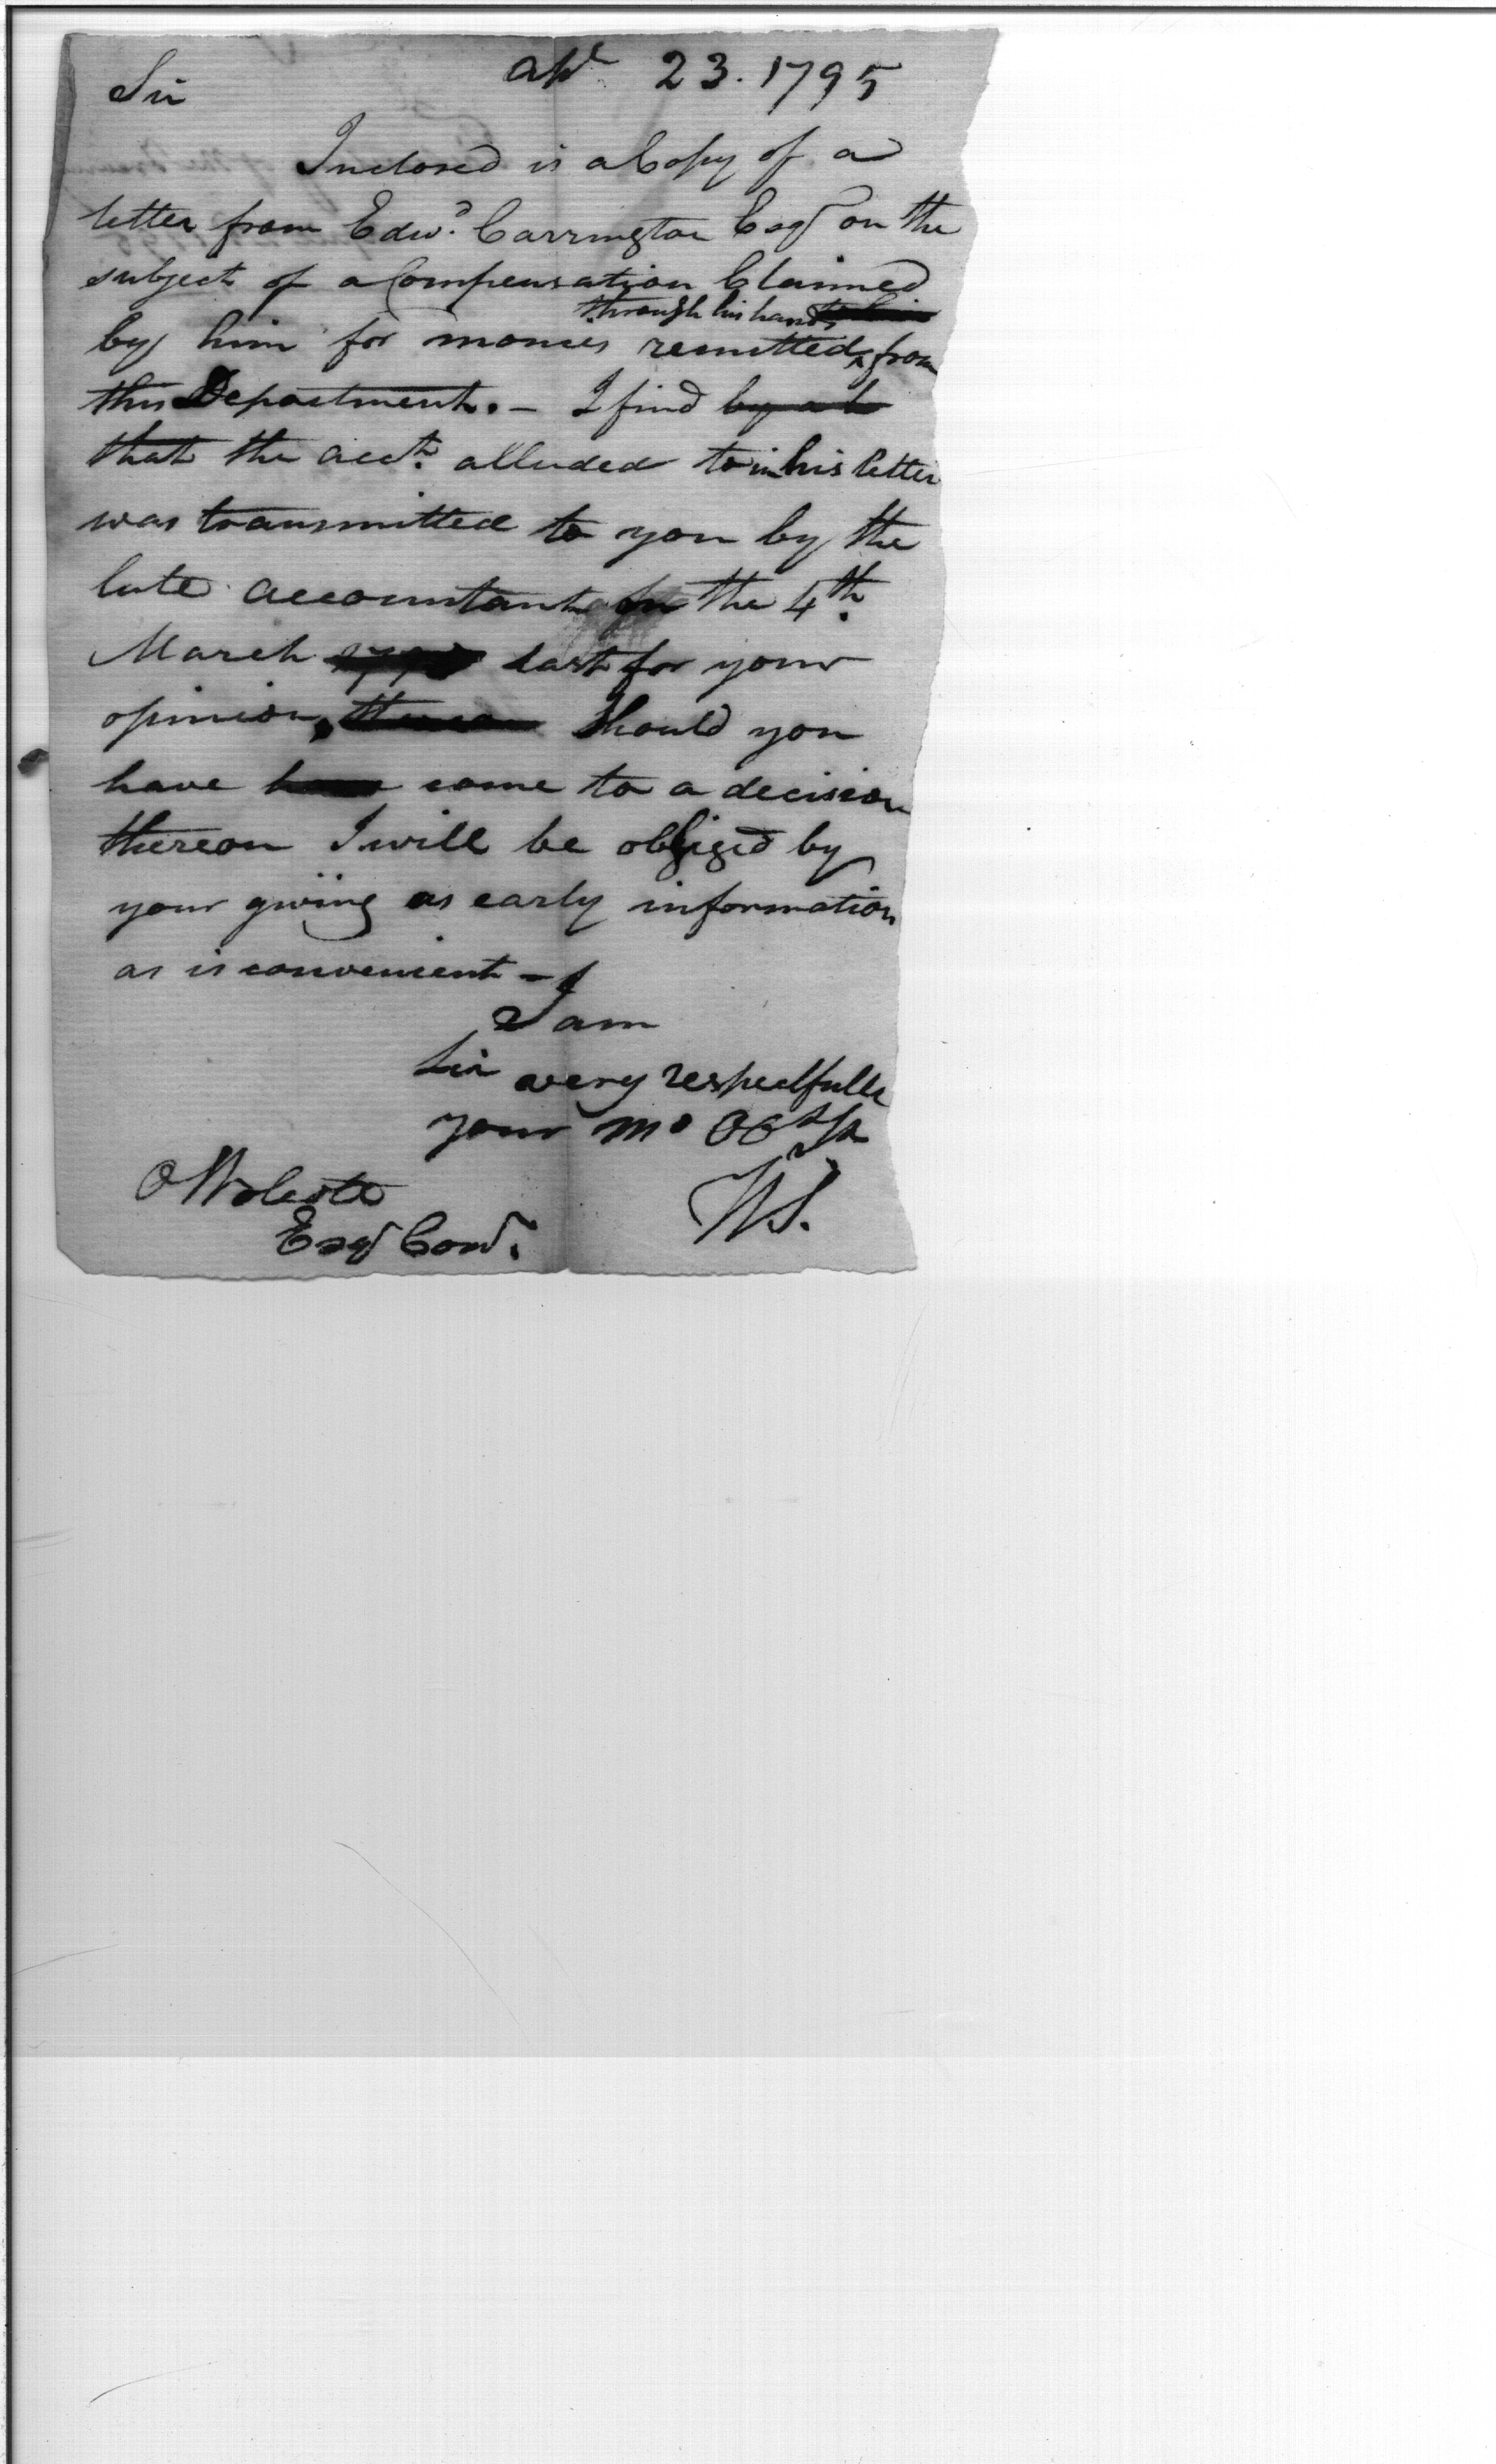 apl 23. 1795
Sir
Inclosed is a Copy of a
letter from Edwd. Carrington Esqr on the
subject of a Compensation Claimed
through his hands to him
by him for monies remitted ^ from
this Department. – I find by a l
that the acct. alluded to in his letter
was transmitted to you by the
late accountant on the 4th.
March last for your
opinion, thereon Should you
have have come to a decision
thereon I will be obliged by
your giving as early information
as is convenient –
I am
Sir very respectfully
your mo Obt
O Wolcott
Esqr Comr.
WS.